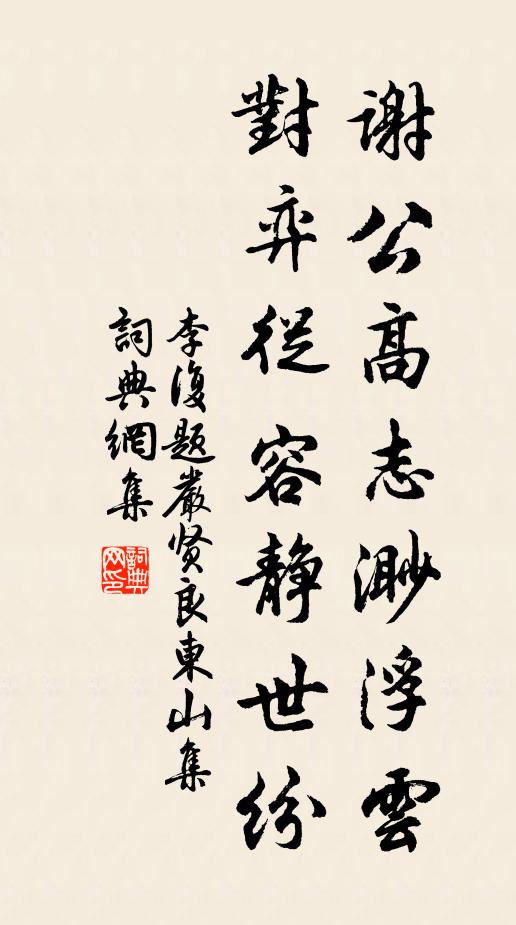 謝公高志渺浮雲
對弈從容静世紛
李復題嚴贤良東山集
詞典網集
詞典网印